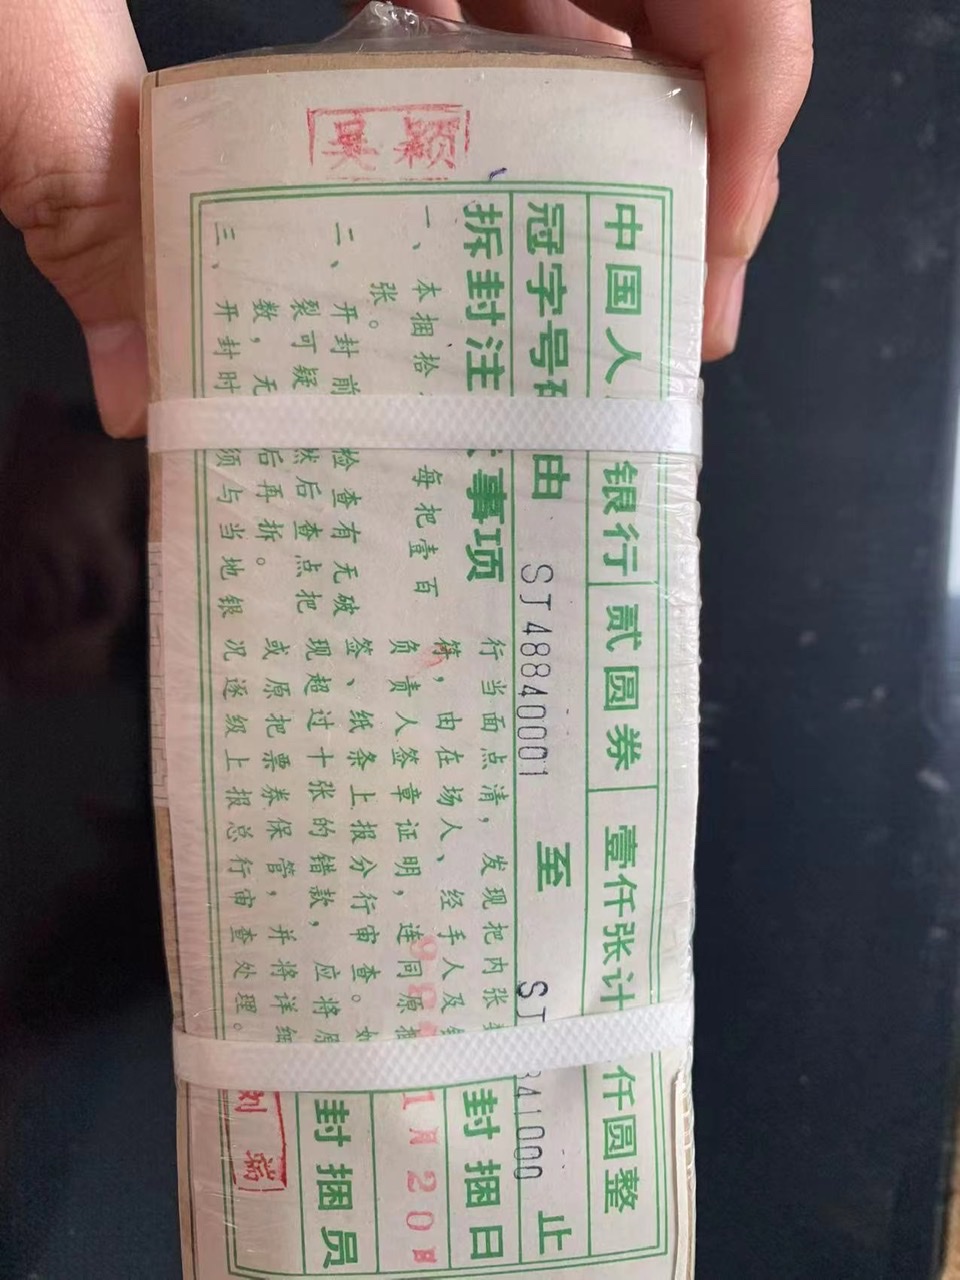 吴颖
中国人 银行 贰圆券 壹仟张计 仟圆整
冠字号码 由 SJ48840001 至 SJ 841000 止
拆封注 事项
一、本捆拾 每把壹百
张。
二、开封前 检查有无破
裂可疑 然后查点把
数,无 后再拆。
三、开封时 须与当地银
行当面点清,发现把内张
符,由在场人、经手人及
负责人签章证明,连同原
签、纸条上报分行审查。如
现超过十张的错款,应将原
或原把票券保管,并将详细
况逐级上报总行审查处理。
封捆日
1月20日
封捆员
刘